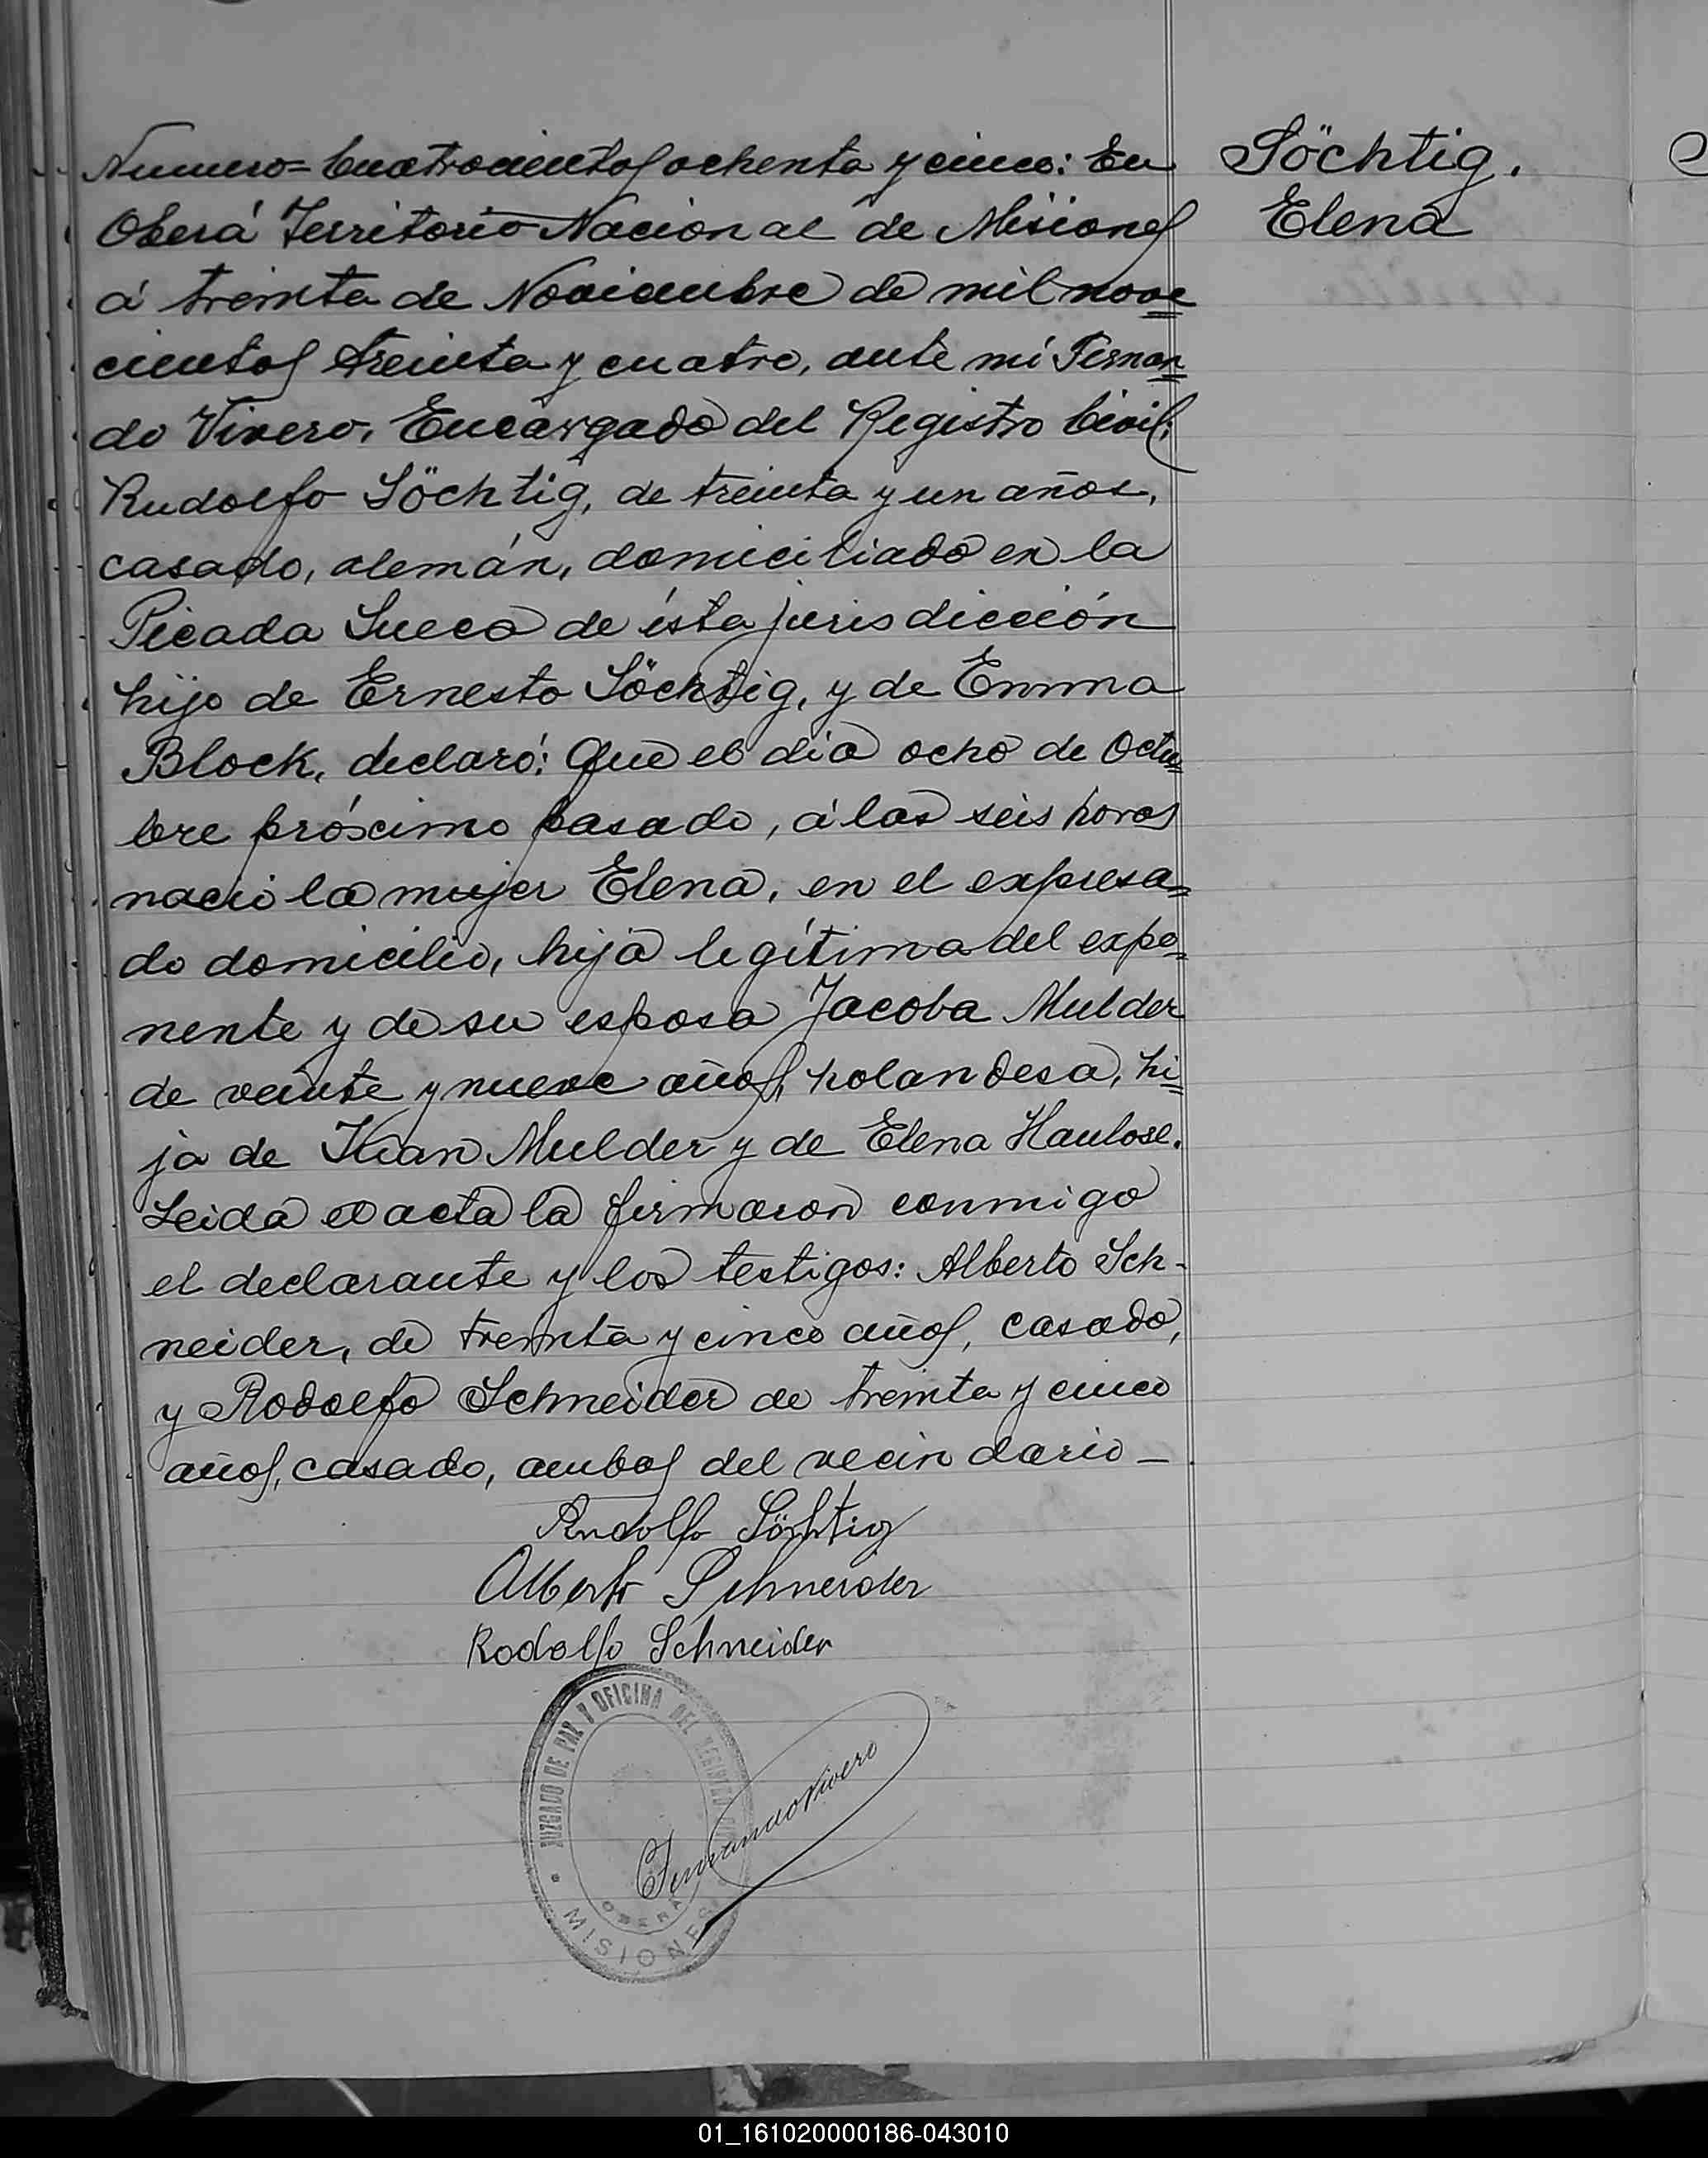 Söchtig.
Elena
Numero= Cuatrocientos ochenta y cinco: En
Oberá Territorio Nacional de Misiones
á treinta de Noviembre de mil nove=
cientos treinta y cuatro, ante mi Fernan=
do Vivero, Encargado del Registro Civil;
Rudolfo Söchtig, de treinta y un años,
casado, alemán, domiciliado en la
Picada Sueca de ésta jurisdicción
hijo de Ernesto Söchtig, y de Emma
Block, declaró: Que el dia ocho de Octu=
bre próximo pasado, á las seis horas
nació la mujer Elena, en el expresa=
do domicilio, hija legítima del expo=
nente y de su esposa Jacoba Mulder
de veinte y nueve años, holandesa, hi=
ja de Juan Mulder y de Elena Haulose.
Leida el acta la firmaron conmigo
el declarante y los testigos: Alberto Sch-
neider, de treinta y cinco años, casado,
y Rodolfo Schneider de treinta y cinco
años, casado, ambos del vecindario —
Rudolfo Söchtig
Alberto Schneider
Rodolfo Schneider
JUZGADO DE PAZ Y OFICINA DEL REGISTRO
Fernando Vivero
OBERÁ
MISIONES
01_161020000186-043010